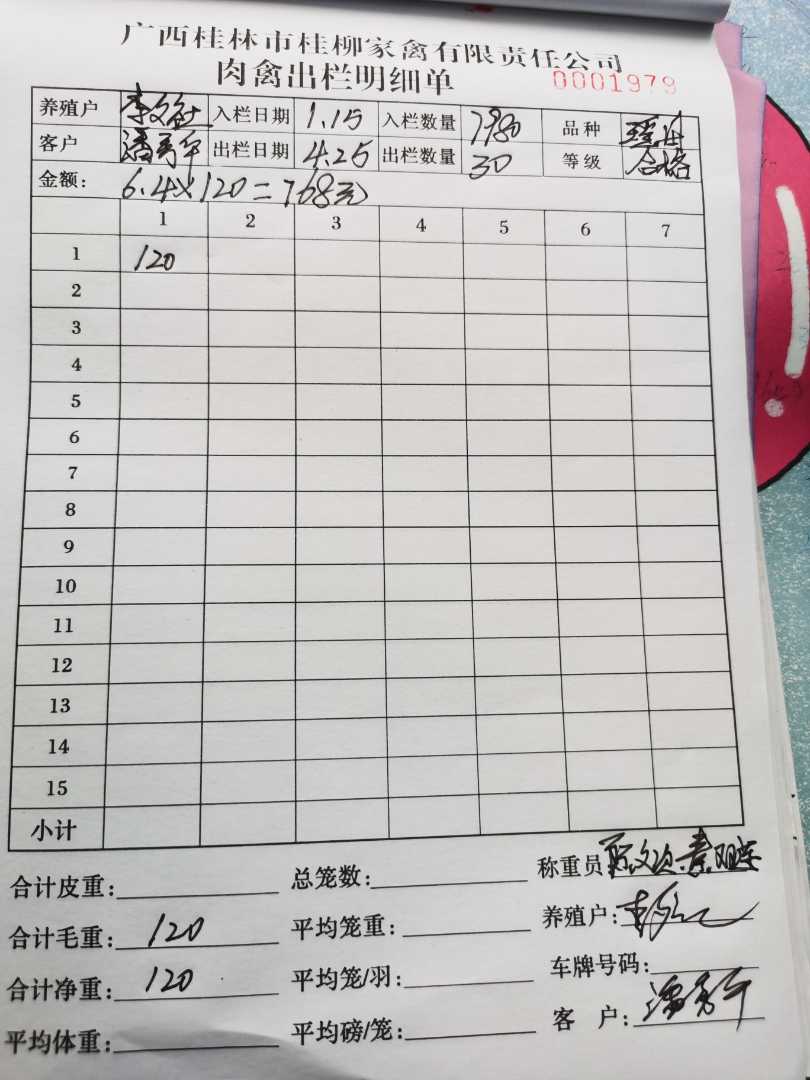 广西桂林市桂柳家禽有限责任公司
肉禽出栏明细单 0001979
养殖户 李 入栏日期 1.15 入栏数量 7980 品种
客户 潘秀华 出栏日期 4.25 出栏数量 30 等级 合格
金额: 6.4×120=768元
1 2 3 4 5 6 7
1 120
2
3
4
5
6
7
8
9
10
11
12
13
14
15
小计
合计皮重: 总笼数: 称重员
合计毛重: 120 平均笼重: 养殖户:
合计净重: 120 平均笼/羽: 车牌号码:
平均体重: 平均磅/笼: 客 户: